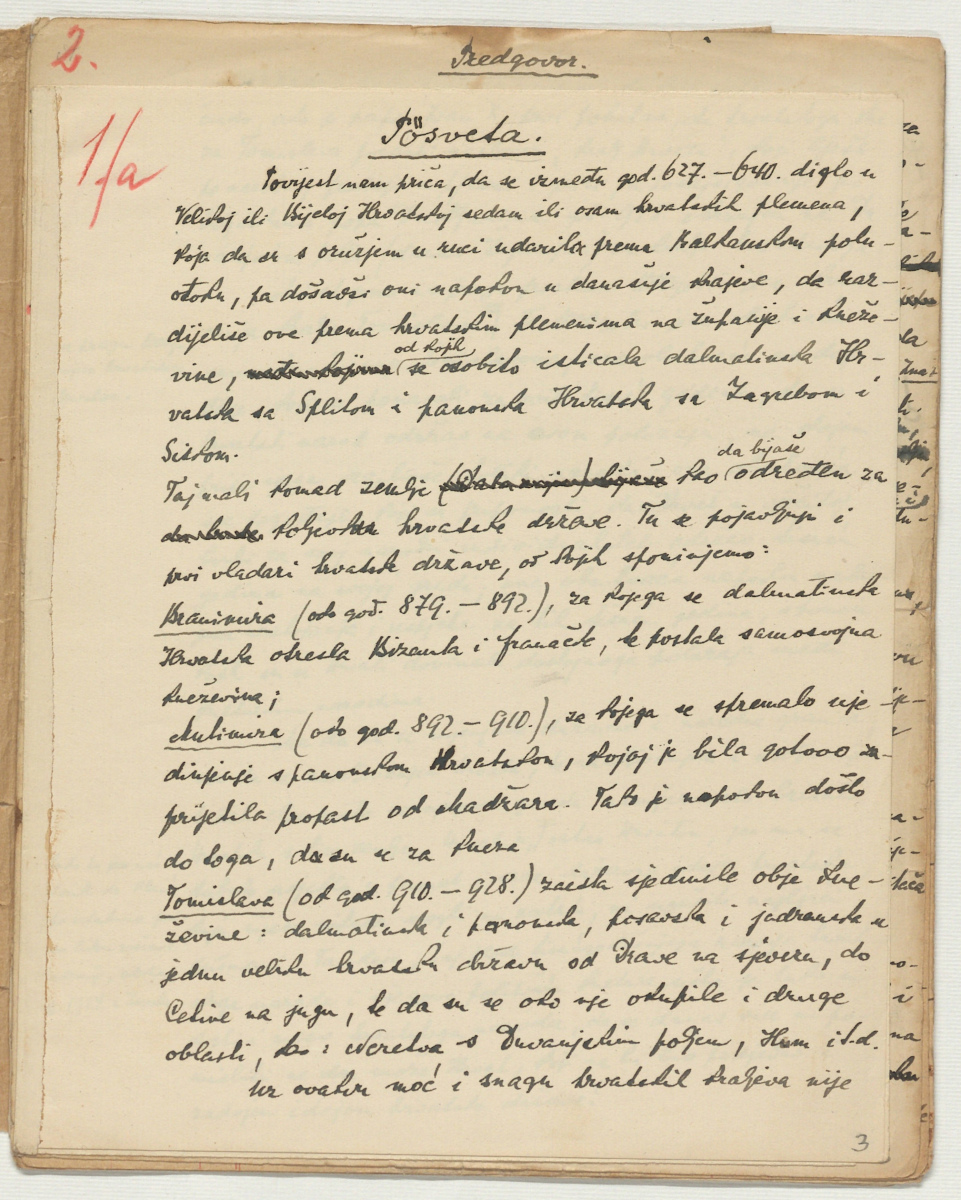 2.
Predgovor.
1/a
Posveta.
Povijest nam priča, da se između god. 627. – 640. diglo u
Velikoj ili Bijeloj Hrvatskoj sedam ili osam hrvatskih plemena,
koja da su s oružjem u ruci udarila prema Balkanskom polu-
otoku, pa došavši oni napokon u današnje krajeve, da raz-
dijeliše ove prema hrvatskim plemenima na županije i kneže-
vine, među kojima od kojih se osobito isticala dalmatinska Hr-
vatska sa Splitom i panonska Hrvatska sa Zagrebom i
Siskom.
Taj mali komad zemlje (Dalmacija) bijaše kao da bijaše određen za
kolijevku hrvatske države. Tu se pojavljuju i
prvi vladari hrvatske države, od kojih spominjemo:
Branimira (oko god. 879. – 892.), za kojega se dalmatinska
Hrvatska otresla Bizanta i franačke, te postala samosvojna
kneževina;
Mutimira (oko god. 892. – 910.), za kojega se spremalo uje-
dinjenje s panonskom Hrvatskom, kojoj je bila gotovo za-
prijetila propast od Madžara. Tako je napokon došlo
do toga, da su se za kneza
Tomislava (od god. 910. – 928.) zaista sjedinile obje kne-
ževine: dalmatinska i panonska, posavska i jadranska u
jednu veliku hrvatsku državu od Drave na sjeveru, do
Cetine na jugu, te da su se oko nje okupile i druge
oblasti, kao: Neretva s Duvanjskim poljem, Hum i t.d.
Uz ovakvu moć i snagu hrvatskih krajeva nije
3